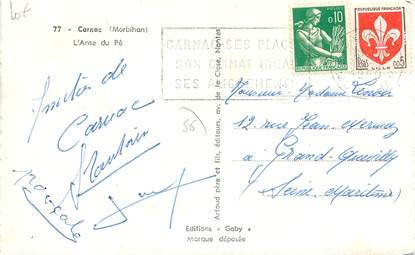 lot
77 - Carnac (Morbihan)
L'Anse du Pô
CARNAC SES PLAGES
SON CLIMAT IDEAL
SES ALIGNEMENTS
POSTES
0,10
REPUBLIQUE FRANÇAISE
POSTES
0,05
56
Amitiés de
Carnac
Artaud père et fils, éditeurs, av. de la Close, Nantes
Monsieur Madame
12 rue Jean Mermoz
à Grand-Quevilly
Seine Maritime
Editions "Gaby"
Marque déposée